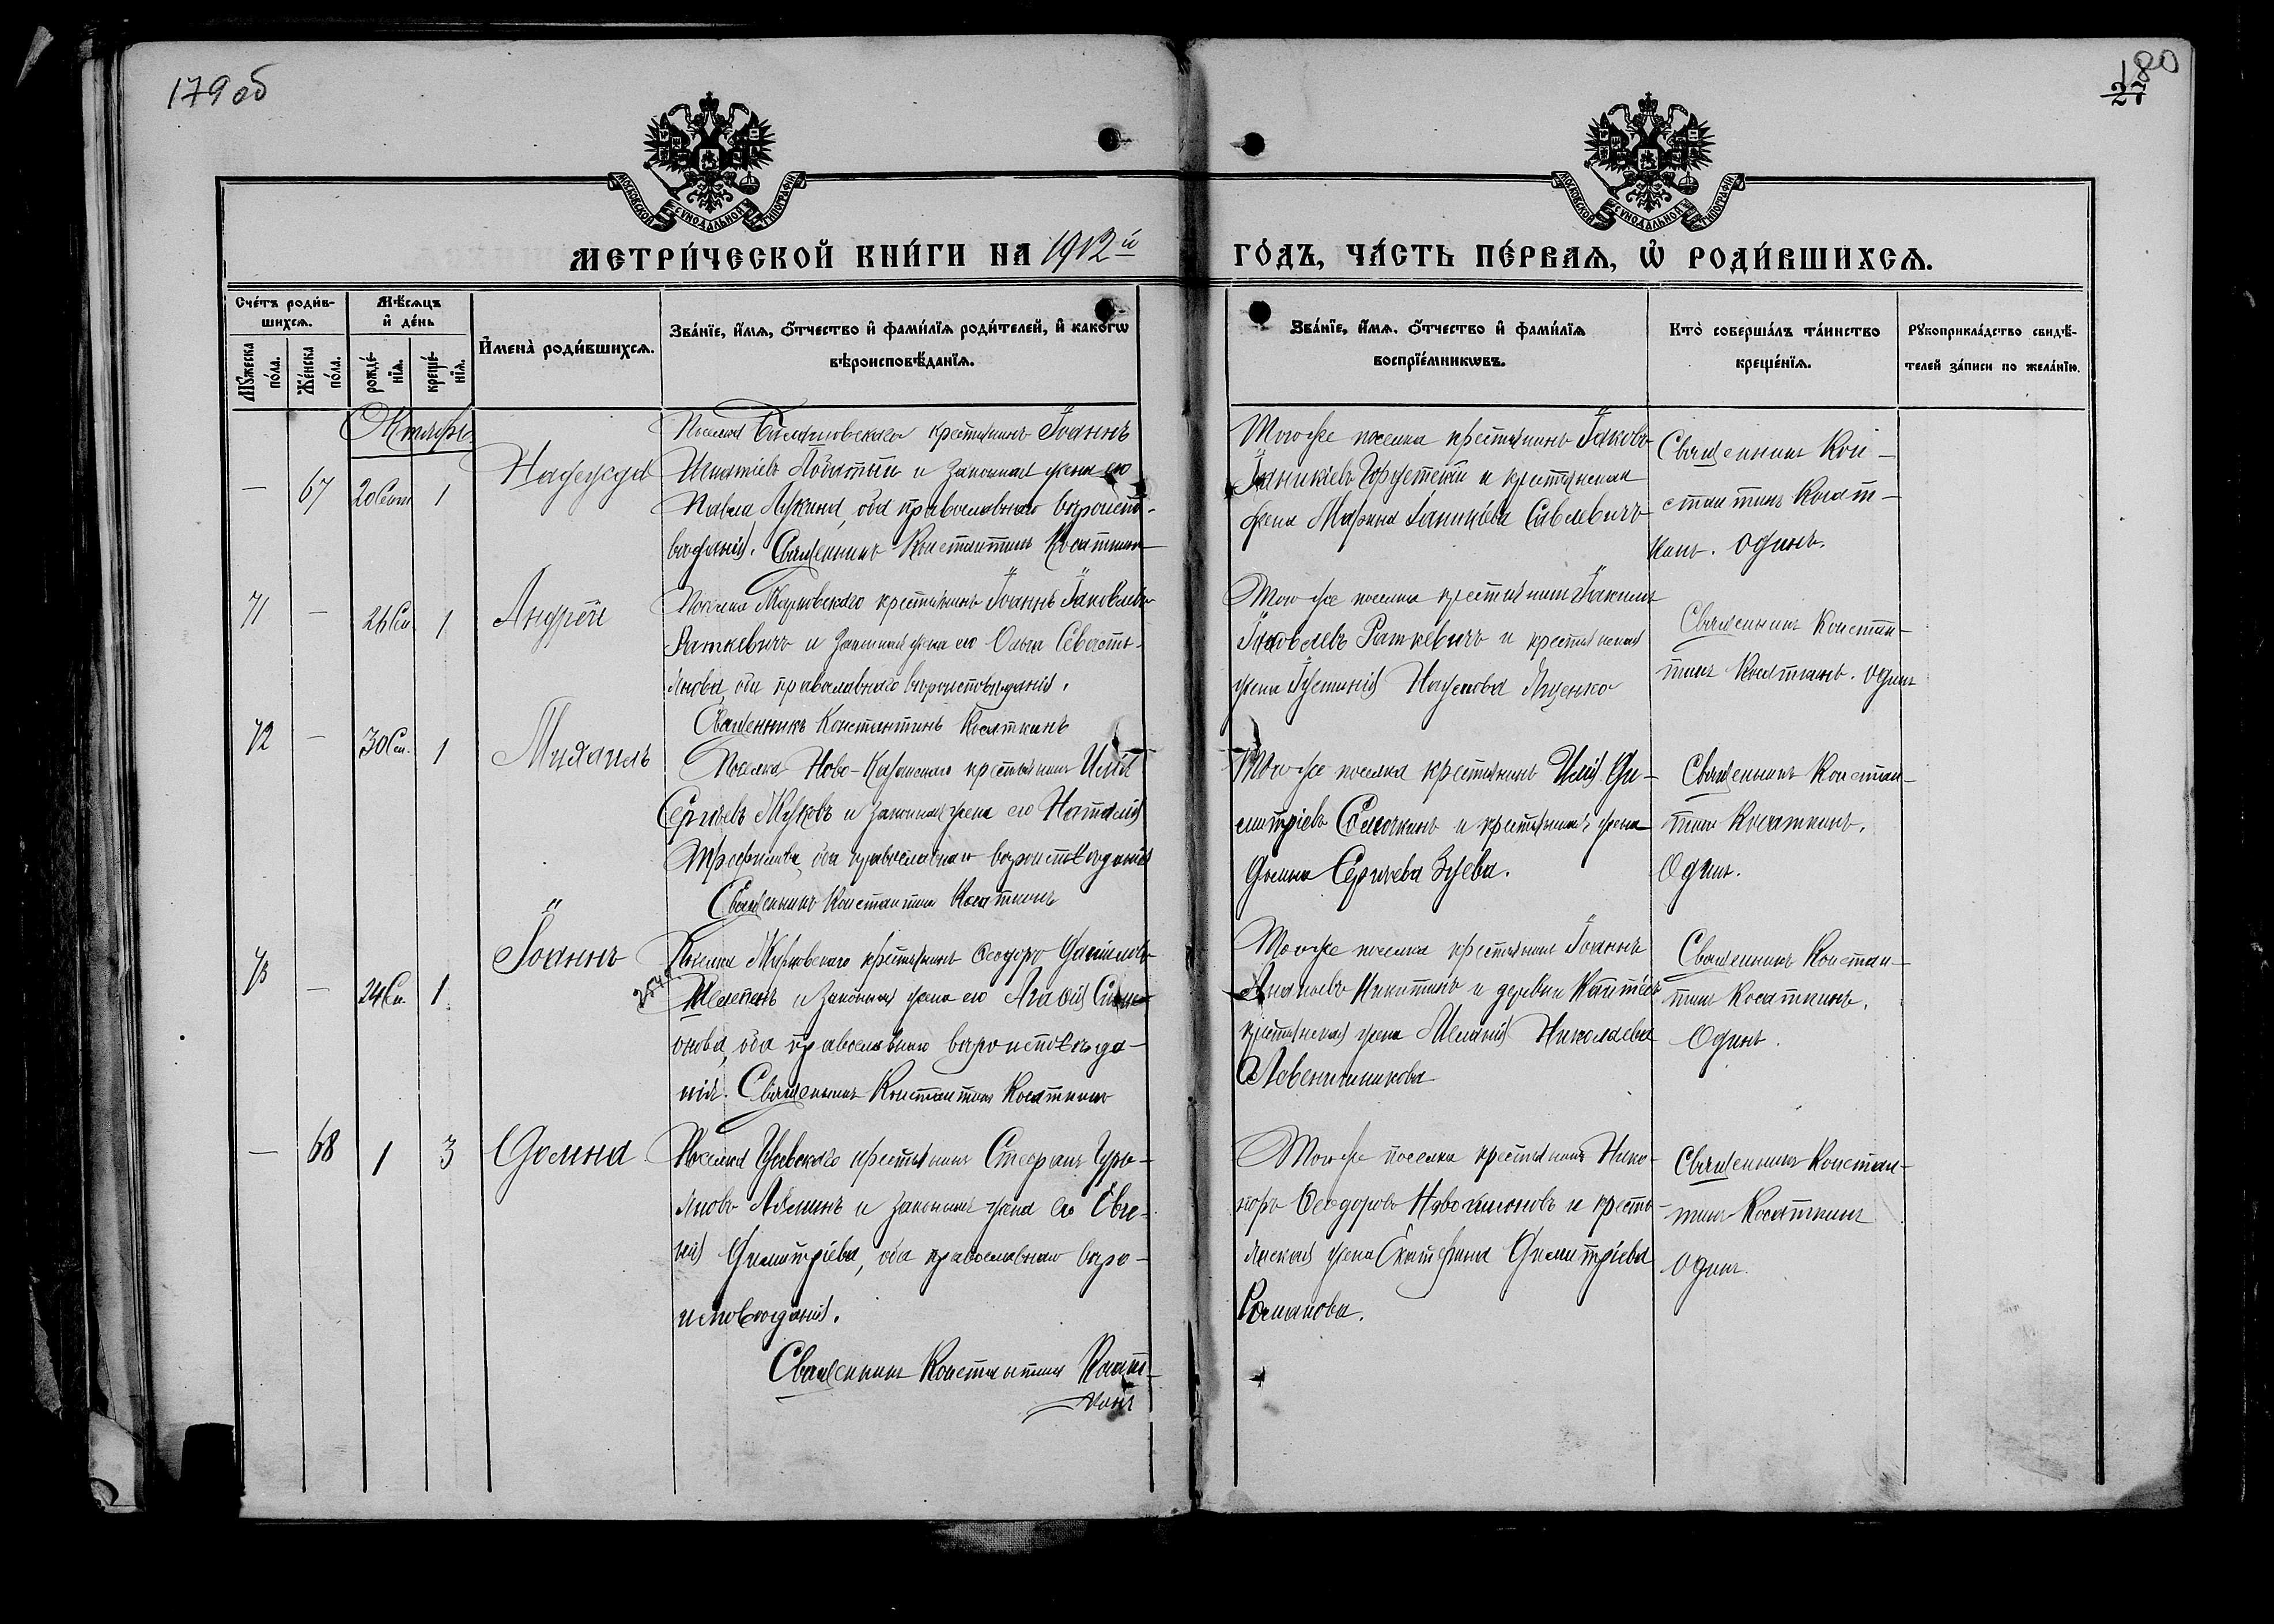 179 об
180
27
МОСКОВСКОЙ СѴНОДАЛЬНОЙ ТИПОГРАФІИ
МОСКОВСКОЙ СѴНОДАЛЬНОЙ ТИПОГРАФІИ
МЕТРИ́ЧЕСКОЙ КНИ́ГИ НА 1912й ГО́ДЪ, ЧА́СТЬ ПЕ́РВАѦ, Ѡ РОДИ́ВШИХСѦ.
Сче́тъ роди́в-
шихсѧ.
Мꙋ́жеска по́ла.
Же́нска по́ла.
Мѣ́сѧцъ и де́нь
рожде́-
нїѧ.
креще́-
нїѧ.
И҆мена̀ роди́вшихсѧ.
Зва́нїе, и҆́мѧ, ѻ҆́тчество и҆ фами́лїѧ роди́телей, и҆ како́гѡ
вѣроисповѣ́данїѧ.
Зва́нїе, и҆́мѧ, ѻ҆́тчество и҆ фами́лїѧ
воспрїе́мникѡвъ.
Кто̀ соверша́лъ та́инство
креще́нїѧ.
Рꙋкоприкла́дство свидѣ́-
телей за́писи по жела́нїю.
Октябрь
— 67 20 Сент. 1 Надежда
Поселка крестьянинъ Іоаннъ
Игнатіевъ и законная жена его
Павла Лукина, оба православнаго вѣроиспо-
вѣданія. Священникъ Константинъ Косаткинъ
Того же поселка крестьянинъ Іаковъ
Іаникіевъ и крестьянская
жена Марина Іаникіева Савлевичъ
Священникъ Кон-
стантинъ Косат-
кинъ. Одинъ.
71 — 26 Сен. 1 Андрей
Поселка Марковскаго крестьянинъ Іоаннъ Іаковлевъ
Раткевичъ и законная жена его Ольга Севасть-
янова, оба православнаго вѣроисповѣданія.
Священникъ Константинъ Косаткинъ
Того же поселка крестьянинъ Іакимъ
Іаковлевъ Раткевичъ и крестьянская
жена Іустинія Наумова Яценко
Священникъ Констан-
тинъ Косаткинъ. Один
72 — 30 Сен. 1 Михаилъ
Поселка Ново-Казанскаго крестьянинъ Илія
Сергіевъ Жуковъ и законная жена его Наталія
Трофимова, оба православнаго вѣроисповѣданія
Священникъ Константинъ Косаткинъ
Того же поселка крестьянинъ Илія Ди-
митріевъ и крестьянская жена
Домна Сергіева Зуева.
Священникъ Констан-
тинъ Косаткинъ.
Одинъ.
73 — 24 Сен. 1 Іоаннъ
Поселка Марковскаго крестьянинъ Ѳеодоръ Даніиловъ
и законная жена его Агаѳія Сим-
онова, оба православнаго вѣроисповѣда-
нія. Священникъ Константинъ Косаткинъ
Того же поселка крестьянинъ Іоаннъ
Ананьевъ Никитинъ и деревни
крестьянская жена Меланія Николаева
Священникъ Констан-
тинъ Косаткинъ.
Одинъ.
— 68 1 3 Домна
Поселка крестьянинъ Стефанъ Гурь-
яновъ и законная жена его Евге-
нія Димитріева, оба православнаго вѣро-
исповѣданія.
Священникъ Константинъ Косат-
кинъ
Того же поселка крестьянинъ Ника-
норъ Ѳеодоровъ и кресть-
янская жена Екатерина Димитріева
Романова.
Священникъ Констан-
тинъ Косаткинъ
Один.